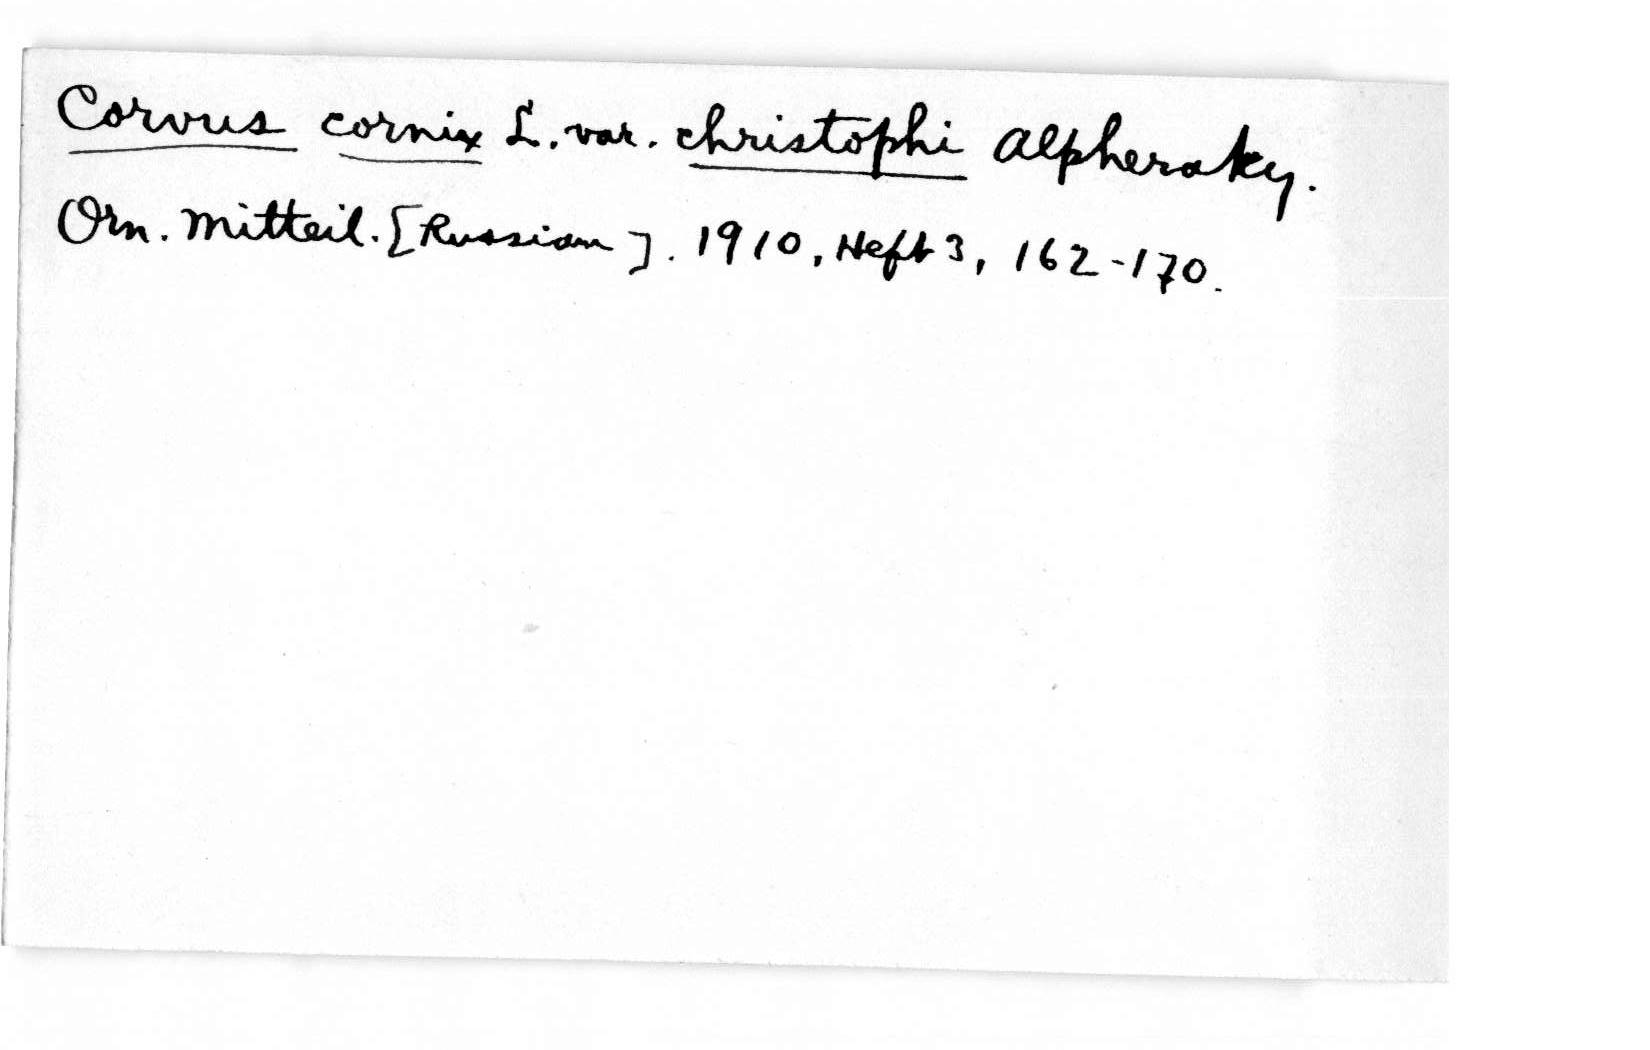 Corvus cornix L. var. christophi Alpheraky.
Orn. Mitteil. [Russian]. 1910, Heft 3, 162-170.